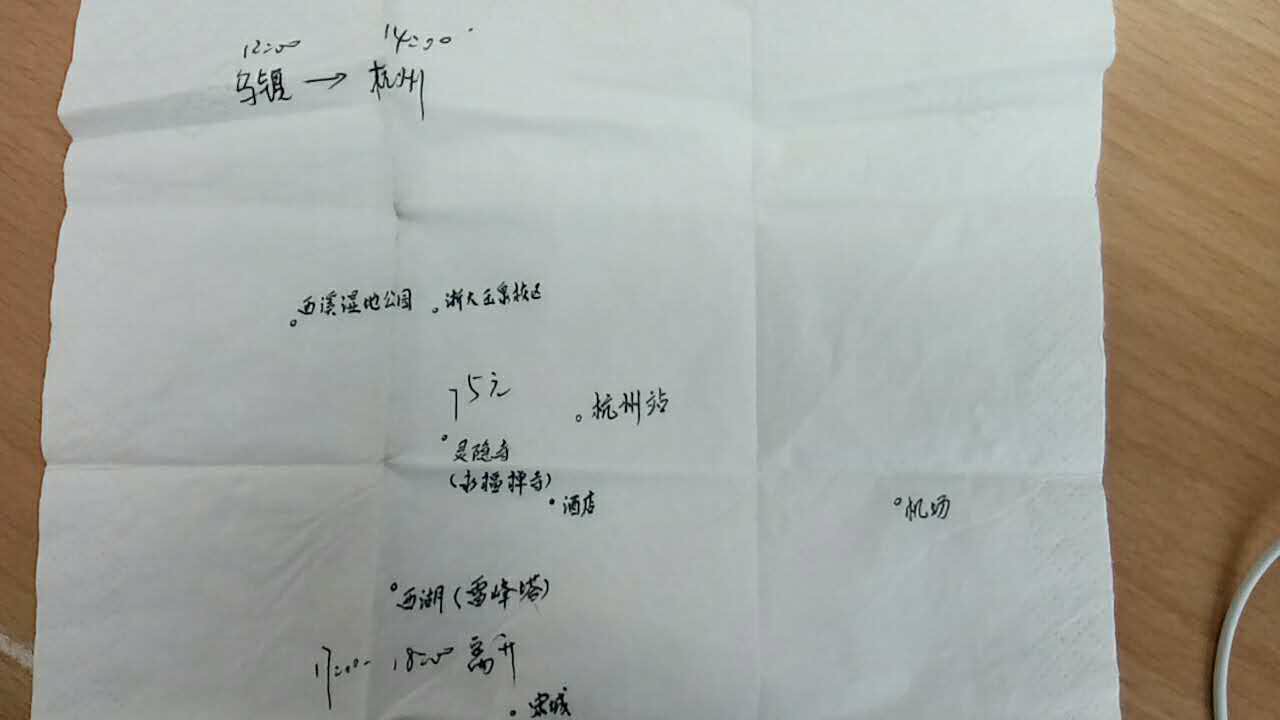 12:00 14:00
乌镇 → 杭州
西溪湿地公园 浙大玉泉校区
75元
杭州站
灵隐寺
(永福禅寺)
酒店
机场
西湖(雷峰塔)
17:00- 18:00 离开
宋城